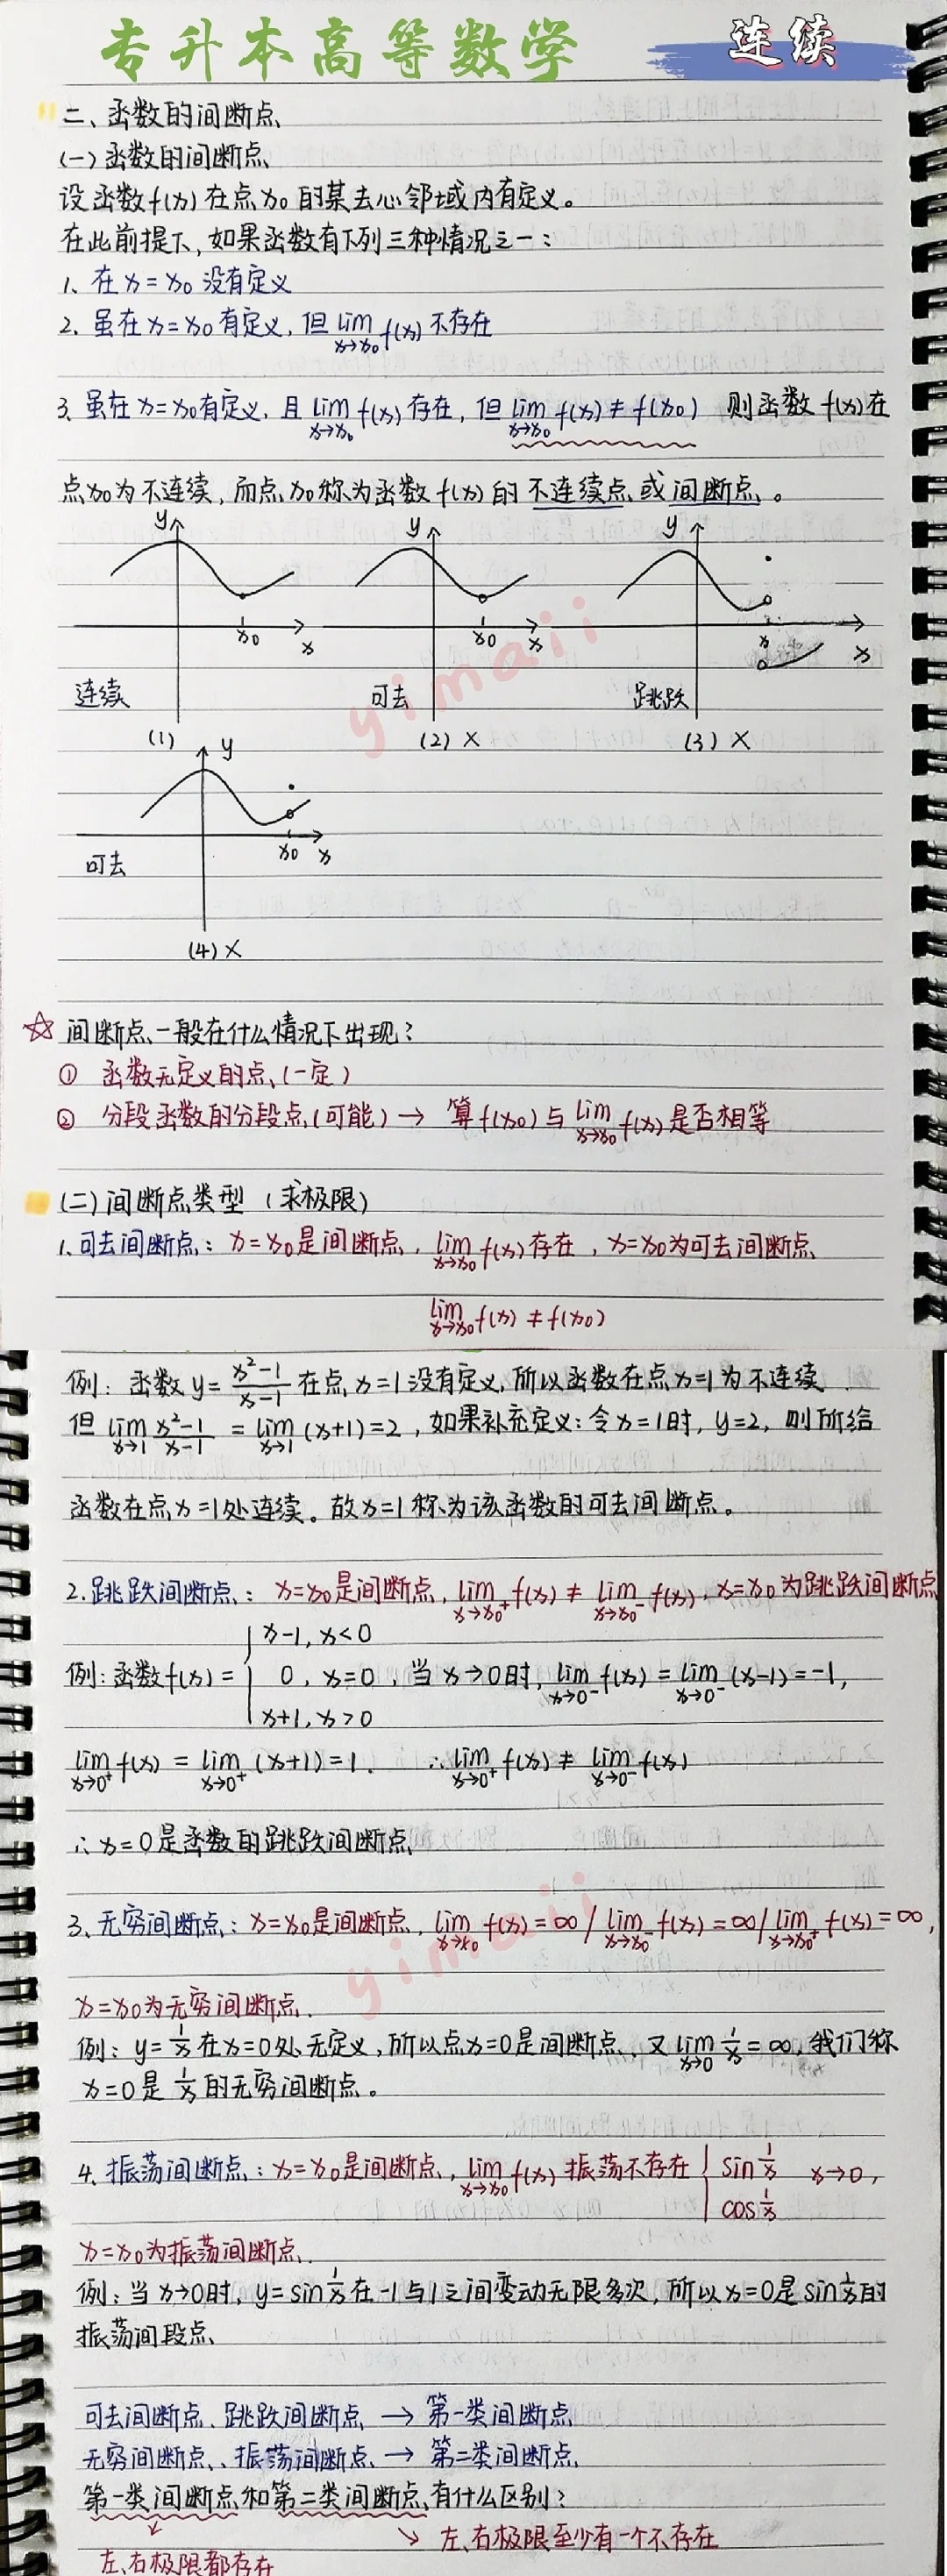 专升本高等数学 连续
二、函数的间断点
(一)函数的间断点
设函数f(x)在点x₀的某去心邻域内有定义。
在此前提下,如果函数有下列三种情况之一:
1、在x=x₀没有定义
2、虽在x=x₀有定义,但lim f(x)不存在
x→x₀
3、虽在x=x₀有定义,且lim f(x)存在,但lim f(x)≠f(x₀) 则函数f(x)在
x→x₀ x→x₀
点x₀为不连续,而点x₀称为函数f(x)的不连续点或间断点。
y y y
x₀ x x₀ x x x
连续 可去 跳跃
(1) (2) × (3) ×
y
x₀ x
可去
(4) ×
☆ 间断点一般在什么情况下出现?
① 函数无定义的点(一定)
② 分段函数的分段点(可能)→ 算f(x₀)与lim f(x)是否相等
x→x₀
(二)间断点类型(求极限)
1、可去间断点:x=x₀是间断点,lim f(x)存在,x=x₀为可去间断点
x→x₀
lim f(x)≠f(x₀)
x→x₀
例:函数y=(x²-1)/(x-1)在点x=1没有定义,所以函数在点x=1为不连续.
但lim (x²-1)/(x-1)=lim(x+1)=2,如果补充定义:令x=1时,y=2,则所给
x→1 x→1
函数在点x=1处连续。故x=1称为该函数的可去间断点。
2、跳跃间断点:x=x₀是间断点,lim f(x)≠lim f(x),x=x₀为跳跃间断点
x→x₀⁺ x→x₀⁻
x-1,x<0
例:函数f(x)={ 0,x=0 ,当x→0时,lim f(x)=lim(x-1)=-1,
x→0⁻ x→0⁻
x+1,x>0
lim f(x)=lim(x+1)=1. ∴lim f(x)≠lim f(x)
x→0⁺ x→0⁺ x→0⁺ x→0⁻
∴x=0是函数的跳跃间断点
3、无穷间断点:x=x₀是间断点,lim f(x)=∞/lim f(x)=∞/lim f(x)=∞,
x→x₀ x→x₀⁻ x→x₀⁺
x=x₀为无穷间断点.
例:y=1/x在x=0处无定义,所以点x=0是间断点、又lim 1/x=∞,我们称
x→0
x=0是1/x的无穷间断点。
4、振荡间断点:x=x₀是间断点,lim f(x)振荡不存在{ sin1/x x→0,
x→x₀
cos1/x
x=x₀为振荡间断点.
例:当x→0时,y=sin1/x在-1与1之间变动无限多次,所以x=0是sin1/x的
振荡间段点、
可去间断点、跳跃间断点 → 第一类间断点
无穷间断点、振荡间断点 → 第二类间断点
第一类间断点和第二类间断点有什么区别?
左、右极限至少有一个不存在
左、右极限都存在
yimaii
yimaii